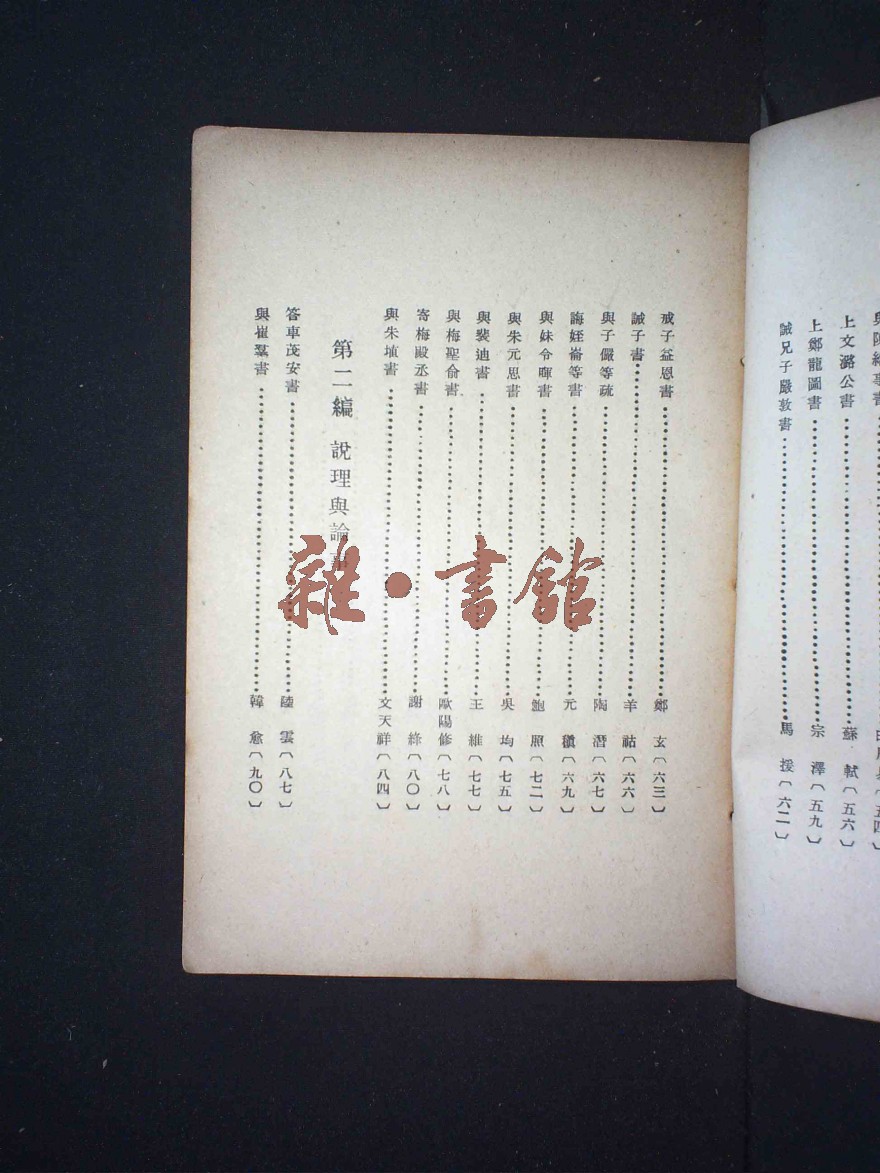 上文潞公書 蘇軾〔五六〕
上鄭龍圖書 宗澤〔五九〕
誡兄子嚴敦書 馬援〔六二〕
戒子益恩書 鄭玄〔六三〕
誡子書 羊祜〔六六〕
與子儼等疏 陶潛〔六七〕
誨姪崙等書 元稹〔六九〕
與妹令暉書 鮑照〔七二〕
與朱元思書 吳均〔七五〕
與裴迪書 王維〔七七〕
與梅聖俞書 歐陽修〔七八〕
寄梅殿丞書 謝絳〔八〇〕
與朱埴書 文天祥〔八四〕
第二編 說理與論
答車茂安書 陸雲〔八七〕
與崔羣書 韓愈〔九〇〕
雜·書館